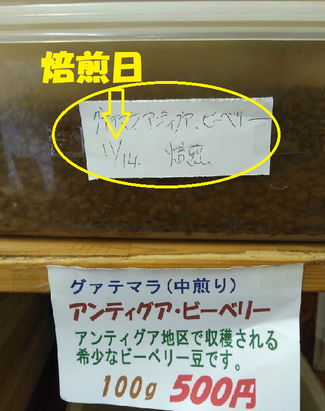 焙煎日
グァテマラアンティグア・ピーベリー
11/14 焙煎
グァテマラ(中煎り)
アンティグア・ピーベリー
アンティグア地区で収穫される
希少なピーベリー豆です。
100g 500円